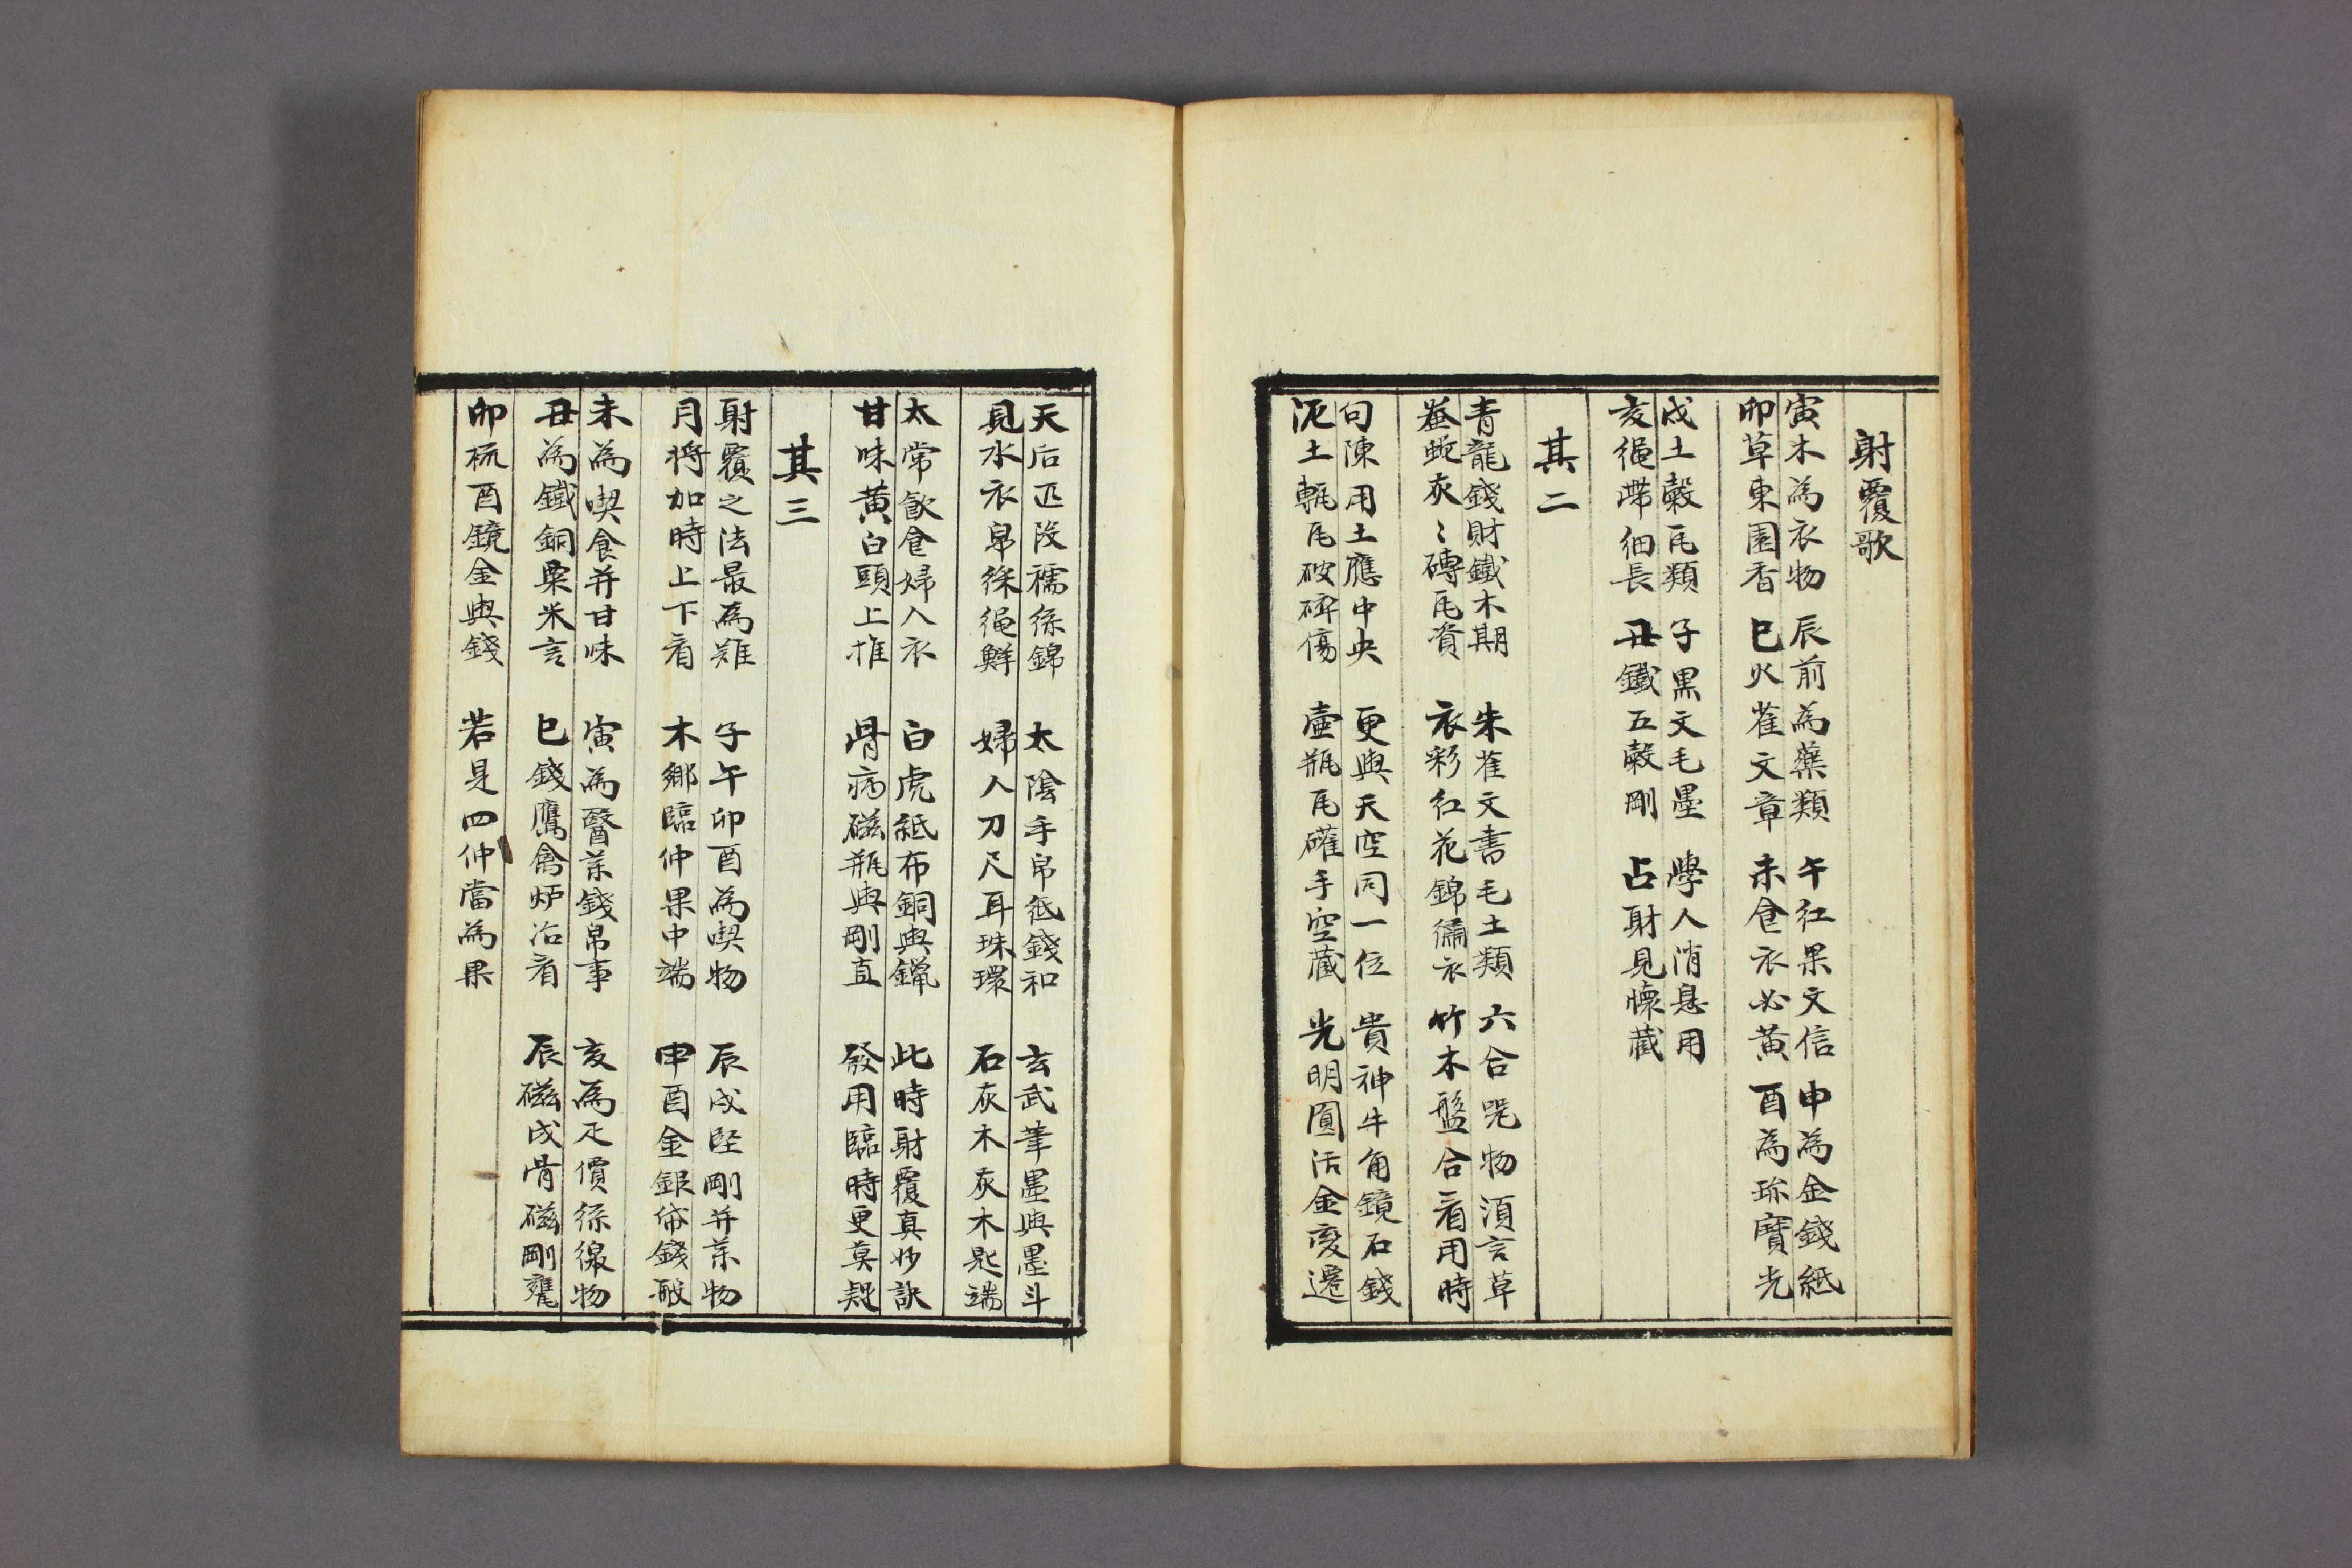 射覆歌
寅木為衣物　辰前為藥類　午紅果文信　申為金錢紙
卯草東園香　巳火雀文章　未食衣必黃　酉為珎寶光
戌土穀瓦類　子黒文毛墨　學人消息用
亥繩帶細長　丑鐵五穀剛　占財見懷藏
其二
青龍錢財鐵木期　朱雀文書毛土類　六合咒物須言草
灰〻磚瓦資　衣彩紅花錦繡衣　竹木盤合看用時
勾陳用土應中央　更與天空同一位　貴神牛角鏡石錢
泥土甎瓦破碎傷　壷瓶瓦礶手空藏　光明圓活金变遷
天后疋段襦絲錦　太陰手帛紙錢和　玄武筆墨與墨斗
見水衣帛綵繩鮮　婦人刀尺耳珠環　石灰木灰木匙端
太常飲食婦人衣　白虎紙布銅與鑞　此時射覆真妙訣
甘味黃白頭上推　骨病磁瓶與剛直　發用臨時更莫疑
其三
射覆之法最為难　子午卯酉為喫物　辰戌堅剛并菜物
月將加時上下看　木鄉臨仲果中端　申酉金銀俗錢
未為喫食并甘味　寅為醫菜錢帛事　亥為疋價絲線物
丑為鐵銅粟米言　巳錢鷹禽炉冶看　辰磁戌骨磁剛甕
卯梳酉鏡金與錢　若是四仲當為果